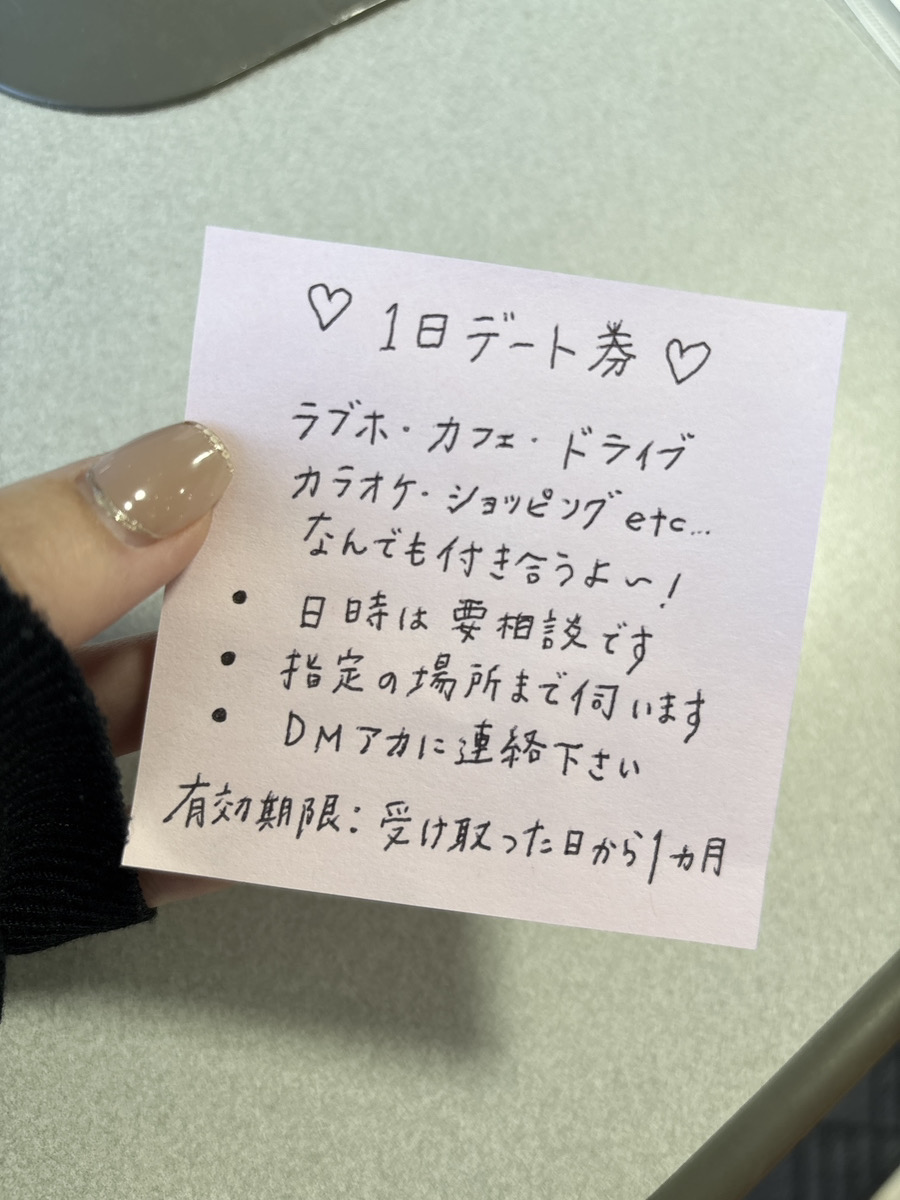 ♡ 1日デート券 ♡
ラブホ・カフェ・ドライブ
カラオケ・ショッピング etc...
なんでも付き合うよ〜!
• 日時は要相談です
• 指定の場所まで伺います
• DMアカに連絡下さい
有効期限:受け取った日から1ヵ月